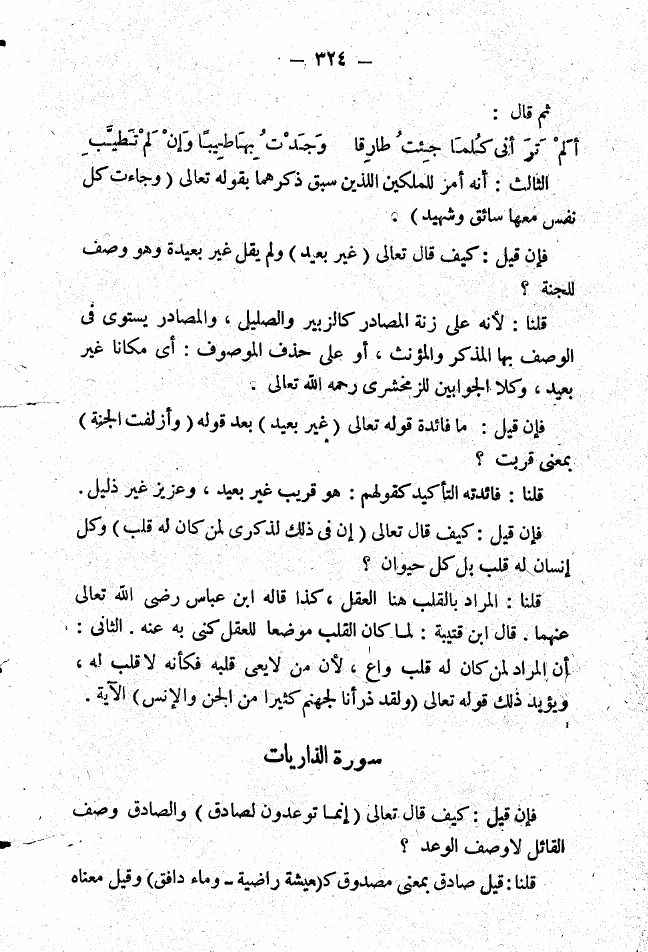 — ٣٢٤ —
ثم قال :
أَلَمْ تَرَ أنى كُلمَا جِئتُ طارِقا وَجَدْتُ بِهَا طِيبًا وَإنْ لَمْ تَطيَّبِ
الثالث : أنه أمر للملكين اللذين سبق ذكرهما بقوله تعالى ( وجاءت كل
نفس معها سائق وشهيد ) .
فإن قيل : كيف قال تعالى ( غير بعيد ) ولم يقل غير بعيدة وهو وصف
للجنة ؟
قلنا : لأنه على زنة المصادر كالزبير والصليل ، والمصادر يستوى فى
الوصف بها المذكر والمؤنث ، أو على حذف الموصوف : أى مكانا غير
بعيد ، وكلا الجوابين للزمخشرى رحمه الله تعالى .
فإن قيل : ما فائدة قوله تعالى ( غير بعيد ) بعد قوله ( وأزلفت الجنة )
بمعنى قربت ؟
قلنا : فائدته التأكيد كقولهم : هو قريب غير بعيد ، وعزيز غير ذليل .
فإن قيل : كيف قال تعالى ( إن فى ذلك لذكرى لمن كان له قلب ) وكل
إنسان له قلب بل كل حيوان ؟
قلنا : المراد بالقلب هنا العقل ، كذا قاله ابن عباس رضى الله تعالى
عنهما . قال ابن قتيبة : لما كان القلب موضعا للعقل كنى به عنه . الثانى :
أن المراد لمن كان له قلب واع ، لأن من لا يعى قلبه فكأنه لا قلب له ،
ويؤيد ذلك قوله تعالى ( ولقد ذرأنا لجهنم كثيرا من الجن والإنس ) الآية .
سورة الذاريات
فإن قيل : كيف قال تعالى ( إنما توعدون لصادق ) والصادق وصف
القائل لا وصف الوعد ؟
قلنا : قيل صادق بمعنى مصدوق كـ(عيشة راضية ــ وماء دافق) وقيل معناه